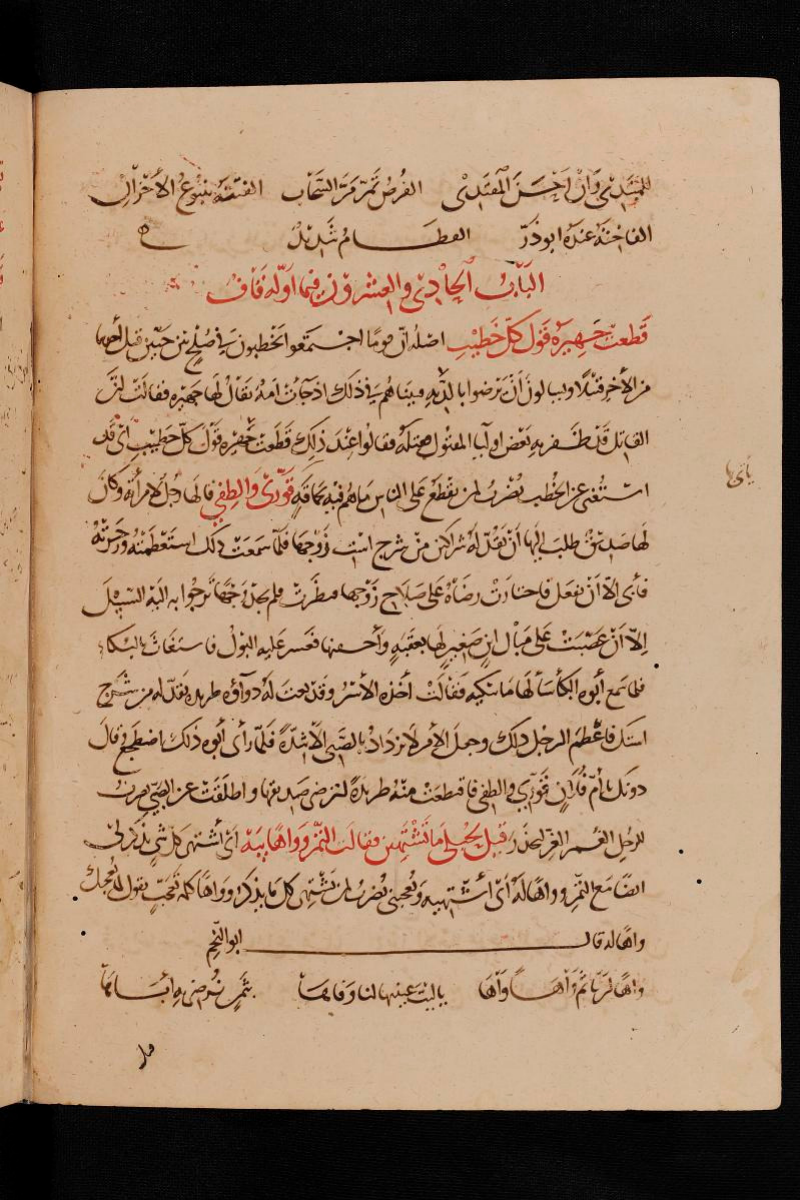 للمبتدي وان احسن المقتدي الفرص تمر مر السحاب الفتنة ينبوع الأحزان
الفاختة عنده ابو ذر العطام شديد ه
الباب الحادي والعشرون فيما اوله قاف
قطعت جهيزة قول كل خطيب اصله ان قوما اجتمعوا يخطبون في صلح بين حيين قتل احدهما
من الأخر قتيلا ويسالون أن يرضوا بالدية فبيناهم في ذلك اذ جآت امة يقال لها جهيزه فقالت ان
القاتل قد ظفر به بعض اوليا المقتول فقتله فقالوا عند ذلك قطعت جهيزه قول كل خطيب اى قد
استغنى عن الخطب يضرب لمن يقطع على الناس ماهم فيه بحماقة قوري والطفي قالها رجل لامرأة وكان
لها صديق طلب اليها أن تقد له شراكين من شرج است زوجها فلما سمعت ذلك استعظمته وزجرته
فأبى الا أن تفعل فاختارت رضاه على صلاح زوجها فنظرت فلم تجد وجها ترجو به اليه السبيل
إلا أن عصبت على مبال ابن صغير لها بعقبه وأخفتها فعسر عليه البول فاستغاث بالبكاء
فلما سمع أبوه البكا سألها ما يبكيه فقالت أخذه الأسر وقد نعت له دوآؤه طريدة تقد له من شرج
استك فاعظم الرجل ذلك وجعل الأمر لا يزداد بالصبي الا شدة فلما رأى أبوه ذلك اضطجع وقال
دونك يا أم فلان قوري والطفي فاقتطعت منه طريدة لترضي صديقها واطلقت عن الصبي يضرب
للرجل الغمر الغر ليحذر قيل لحبلى ما تشتهين فقالت التمر وواها بيه أى أشتهى كل شي يذكر لى
ايضا مع التمر وواها له أى أشتهيه وتعجبنى يضرب لمن يشتهى كل ما يذكر وواها كلمة تعجب يقول لما يعجبك
واها له قال ابو النجم
واها لريا ثم واها واها ياليت عينيها لنا وفاها بثمن نرضى به أباها